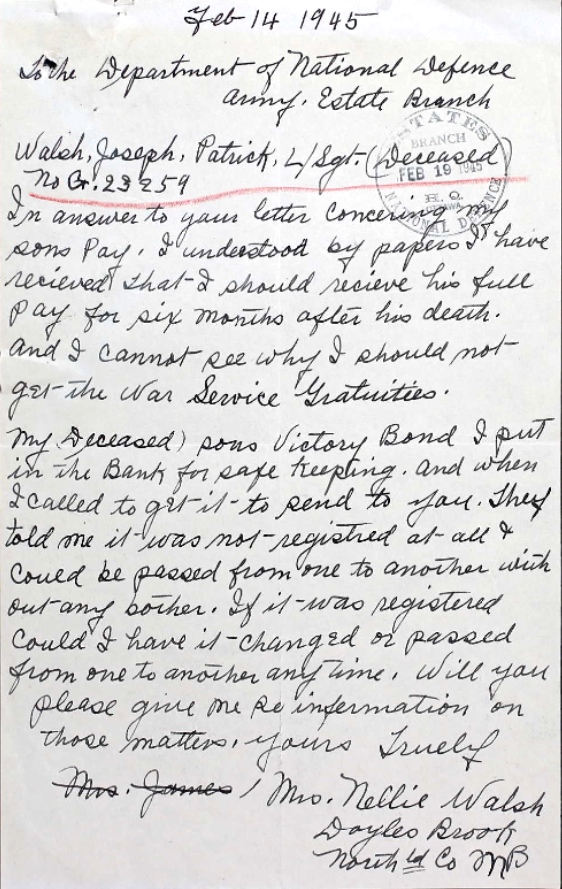 Feb 14 1945
To the Department of National Defence
Army. Estate Branch
STATES
BRANCH
FEB 19 1945
H. Q.
NATIONAL DEFENCE
Walsh, Joseph, Patrick, L/Sgt. (Deceased)
No G. 23259
In answer to your letter concering my
sons Pay. I understood by papers I have
recieved that I should recieve his full
Pay for six months after his death.
and I cannot see why I should not
get the War Service Gratuities.
My Deceased) sons Victory Bond I put
in the Bank for safe keeping. and when
I called to get it to send to you. They
told me it was not registred at all &
could be passed from one to another with
out any bother. If it was registered
could I have it changed or passed
from one to another any time. Will you
please give me information on
those matters. yours Truely
Mrs. James / Mrs. Nellie Walsh
Doyles Brook
North ld Co NB